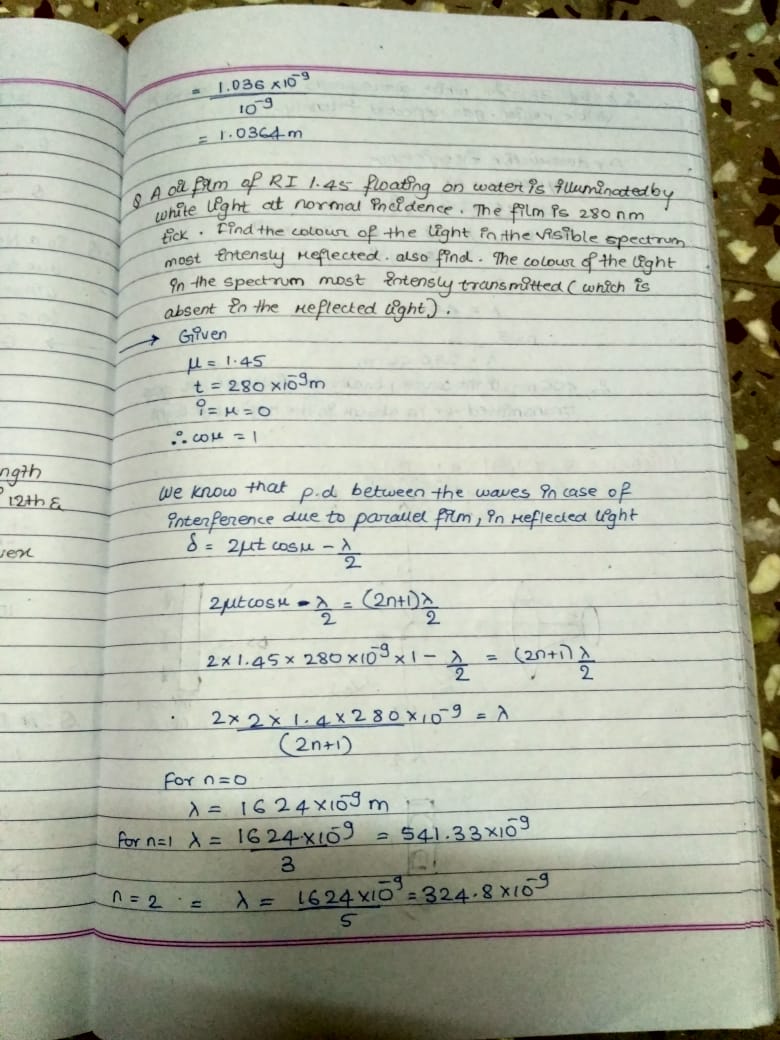 = 1.036 × 10⁻⁹ / 10⁻⁹
= 1.0364 m
Q A oil film of RI 1.45 floating on water is illuminated by
white light at normal incidence. The film is 280 nm
tick. Find the colour of the light in the visible spectrum
most intensly reflected. also find. The colour of the light
in the spectrum most intensly transmitted (which is
absent in the reflected light).
→ Given
μ = 1.45
t = 280 × 10⁻⁹ m
i = r = 0
∴ cosr = 1
ngth
12th &
ver
We know that p.d between the waves in case of
interference due to parallel film, in reflected light
δ = 2μt cosr - λ/2
2μt cosr - λ/2 = (2n+1) λ/2
2 × 1.45 × 280 × 10⁻⁹ × 1 - λ/2 = (2n+1) λ/2
2 × 2 × 1.4 × 280 × 10⁻⁹ / (2n+1) = λ
For n=0
λ = 1624 × 10⁻⁹ m
For n=1 λ = 1624 × 10⁻⁹ / 3 = 541.33 × 10⁻⁹
n = 2 = λ = 1624 × 10⁻⁹ / 5 = 324.8 × 10⁻⁹